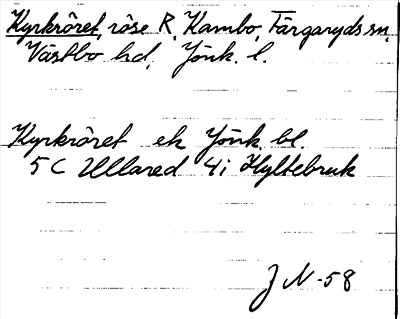 Kyrkröret, röse R. Kambo, Färgaryds sn,
Västbo hd, Jönk. l.
Kyrkröret ek Jönk. bl.
5 C Ullared 4i Hyltebruk
J N -58